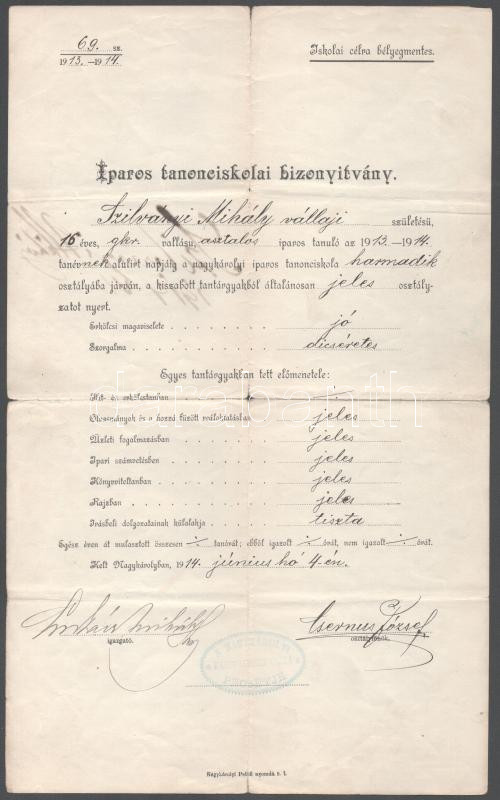 69. sz.
1913.—1914.
Iskolai célra bélyegmentes.
Iparos tanonciskolai bizonyitvány.
Szilványi Mihály vállaji születésü,
16 éves, gkr. vallásu, asztalos iparos tanuló az 1913.—1914.
tanévnek alulirt napjáig a nagykárolyi iparos tanonciskola harmadik
osztályába járván, a kiszabott tantárgyakból általánosan jeles osztály-
zatot nyert.
Erkölcsi magaviselete jó
Szorgalma dicséretes
Egyes tantárgyakban tett előmenetele:
Hit- és erkölcstanban ·/·
Olvasmányok és a hozzá fűzött reáloktatásban jeles
Üzleti fogalmazásban jeles
Ipari számvetésben jeles
Könyvviteltanban jeles
Rajzban jeles
Irásbeli dolgozatainak külalakja tiszta
Egész éven át mulasztott összesen ·/· tanórát; ebből igazolt ·/· órát, nem igazolt ·/· órát.
Kelt Nagykárolyban, 1914. június hó 4-én.
Csernus József
igazgató.
osztályfőnök.
darabanth
Nagykárolyi Petőfi nyomda r. t.